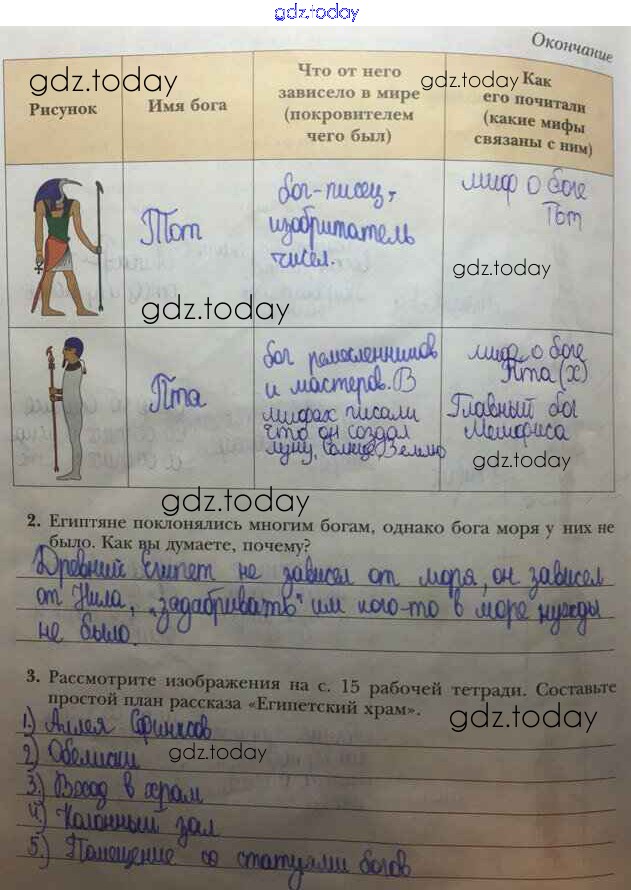 gdz.today
Окончание
gdz.today
gdz.today
Рисунок
Имя бога
Что от него
зависело в мире
(покровителем
чего был)
Как
его почитали
(какие мифы
связаны с ним)
Тот
бог-писец,
изобритатель
чисел.
миф о боге
Тот
gdz.today
gdz.today
Пта
бог ремесленников
и мастеров. В
мифах писали
что он создал
луну, солнце, Землю
миф о боге
Пта(х)
Главный бог
Мемфиса
gdz.today
gdz.today
2. Египтяне поклонялись многим богам, однако бога моря у них не
было. Как вы думаете, почему?
Древний Египет не зависел от моря, он зависел
от Нила, „задабривать" им кого-то в море нужды
не было.
3. Рассмотрите изображения на с. 15 рабочей тетради. Составьте
простой план рассказа «Египетский храм».
gdz.today
1) Аллея Сфинксов
2) Обелиски
gdz.today
3.) Вход в храм
4) Колонный зал
5.) Помещение со статуями богов